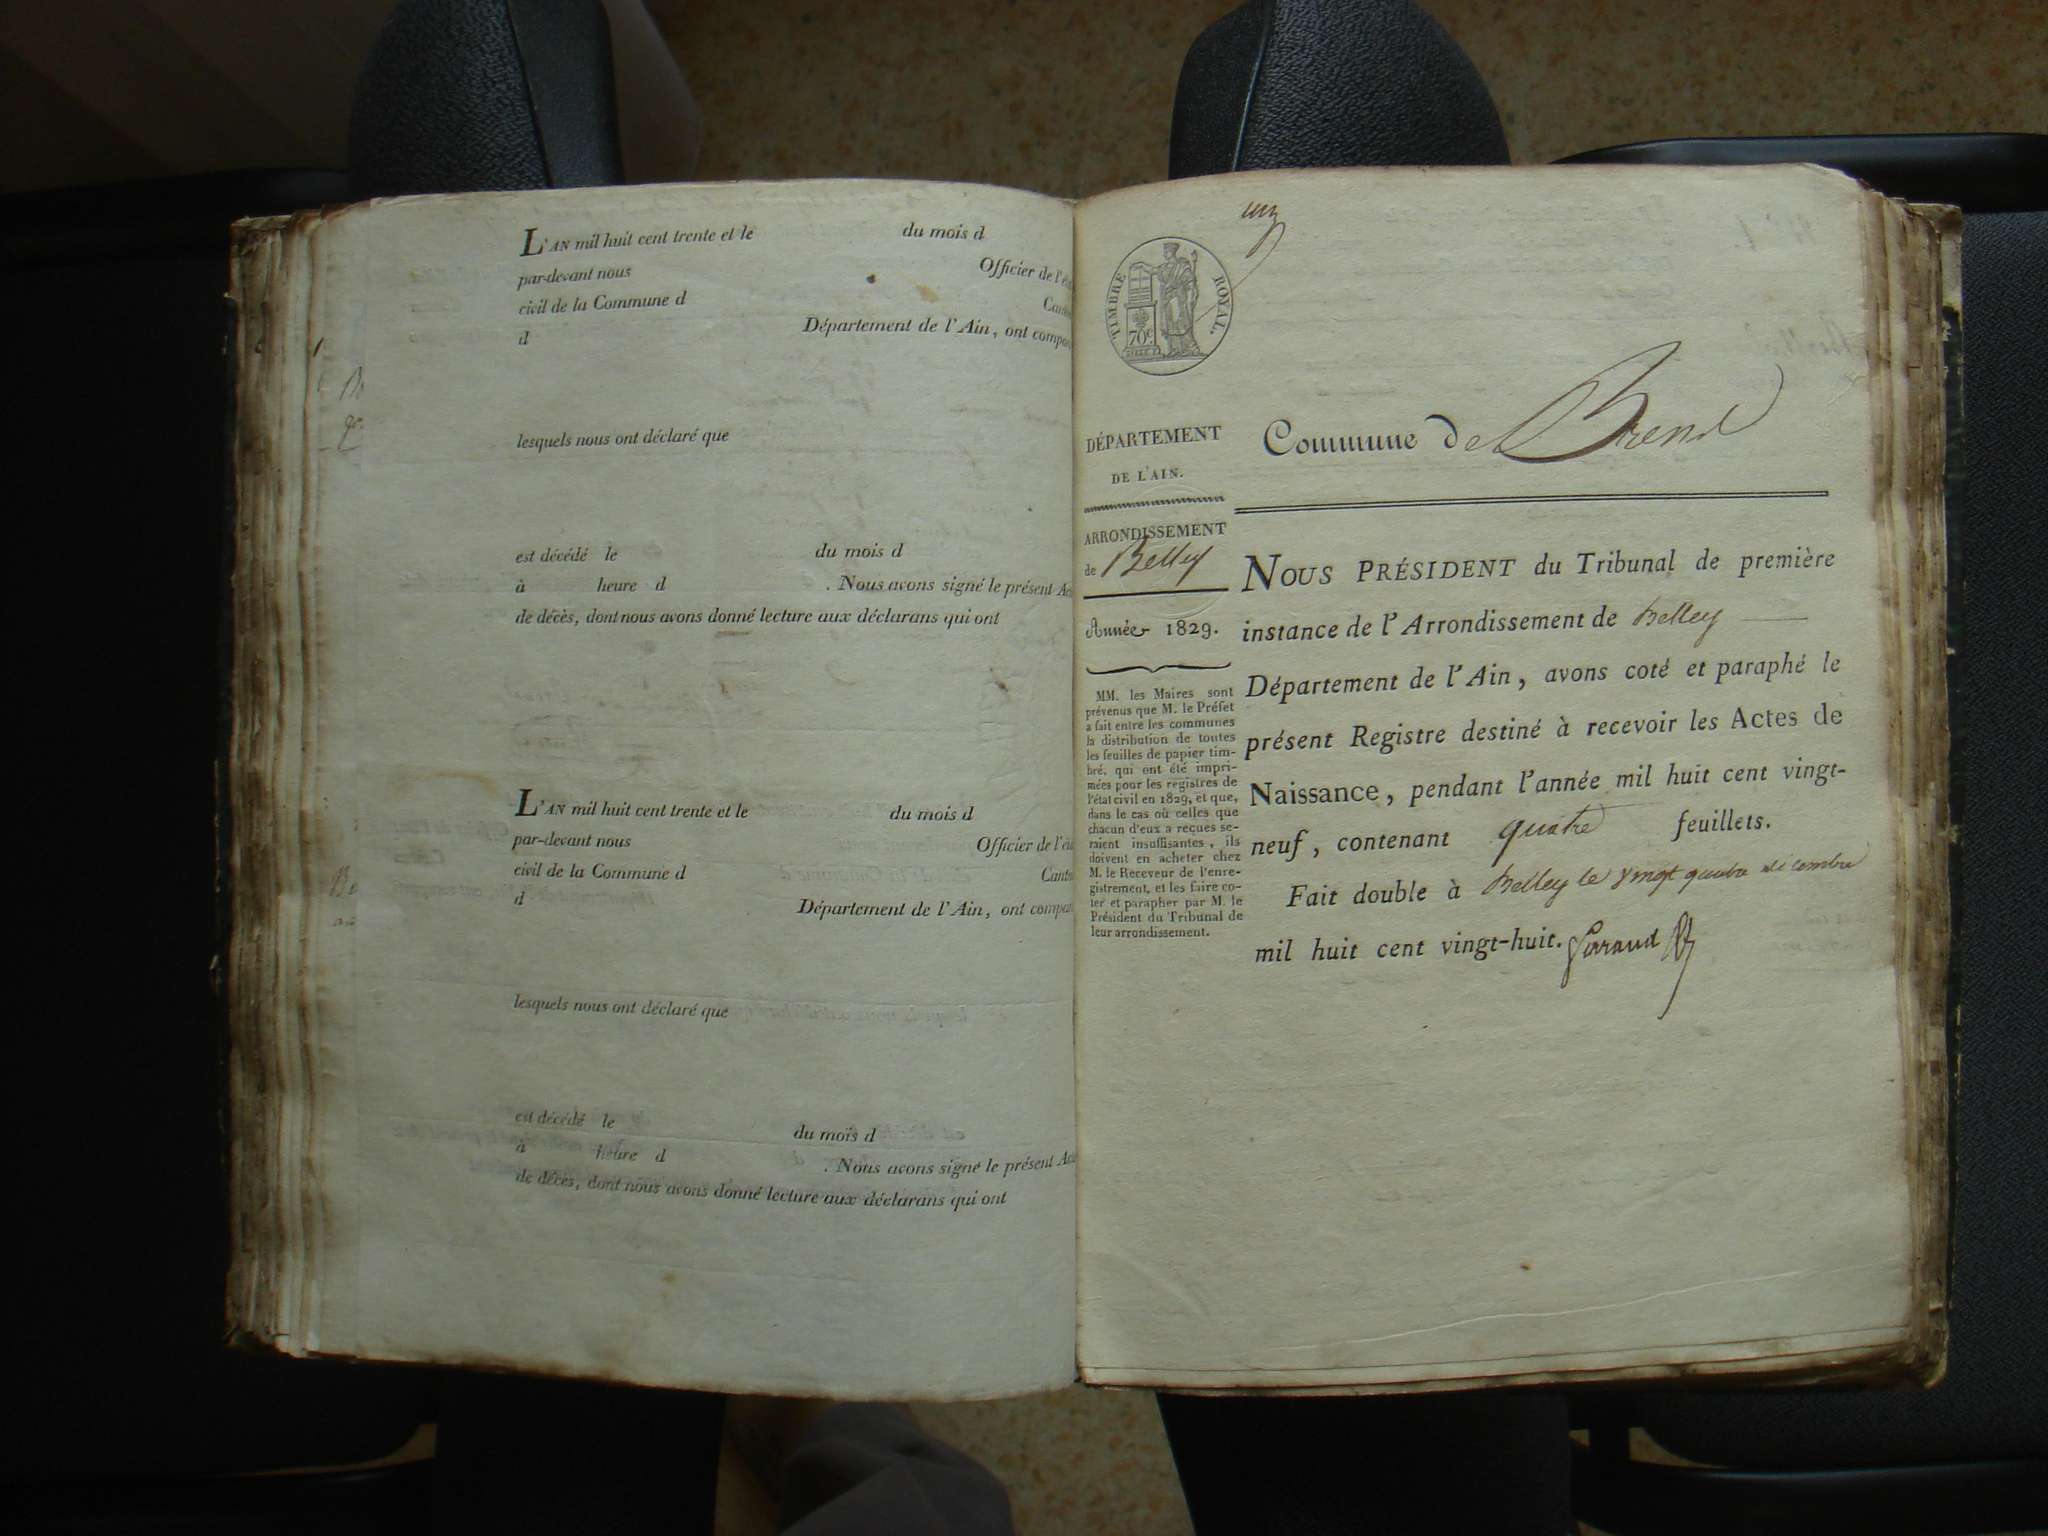 L'AN mil huit cent trente et le du mois d
par-devant nous Officier de l'é
civil de la Commune d Canto
d Département de l'Ain, ont compa
lesquels nous ont déclaré que
est décédé le du mois d
à heure d . Nous avons signé le présent Ac
de décès, dont nous avons donné lecture aux déclarans qui ont
L'AN mil huit cent trente et le du mois d
par-devant nous Officier de l'éta
civil de la Commune d Canto
d Département de l'Ain, ont compa
lesquels nous ont déclaré que
est décédé le du mois d
à heure d . Nous avons signé le présent Ac
de décès, dont nous avons donné lecture aux déclarans qui ont
un
TIMBRE ROYAL.
70c.
DÉPARTEMENT
DE L'AIN.
ARRONDISSEMENT
de Belley
Année 1829.
MM. les Maires sont
prévenus que M. le Préfet
a fait entre les communes
la distribution de toutes
les feuilles de papier tim-
bré, qui ont été impri-
mées pour les registres de
l'état civil en 1829, et que,
dans le cas où celles que
chacun d'eux a reçues se-
raient insuffisantes, ils
doivent en acheter chez
M. le Receveur de l'enre-
gistrement, et les faire co-
ter et parapher par M. le
Président du Tribunal de
leur arrondissement.
Commune de Brens
NOUS PRÉSIDENT du Tribunal de première
instance de l'Arrondissement de Belley
Département de l'Ain, avons coté et paraphé le
présent Registre destiné à recevoir les Actes de
Naissance, pendant l'année mil huit cent vingt-
neuf, contenant quatre feuillets.
Fait double à Belley le vingt quatre décembre
mil huit cent vingt-huit.